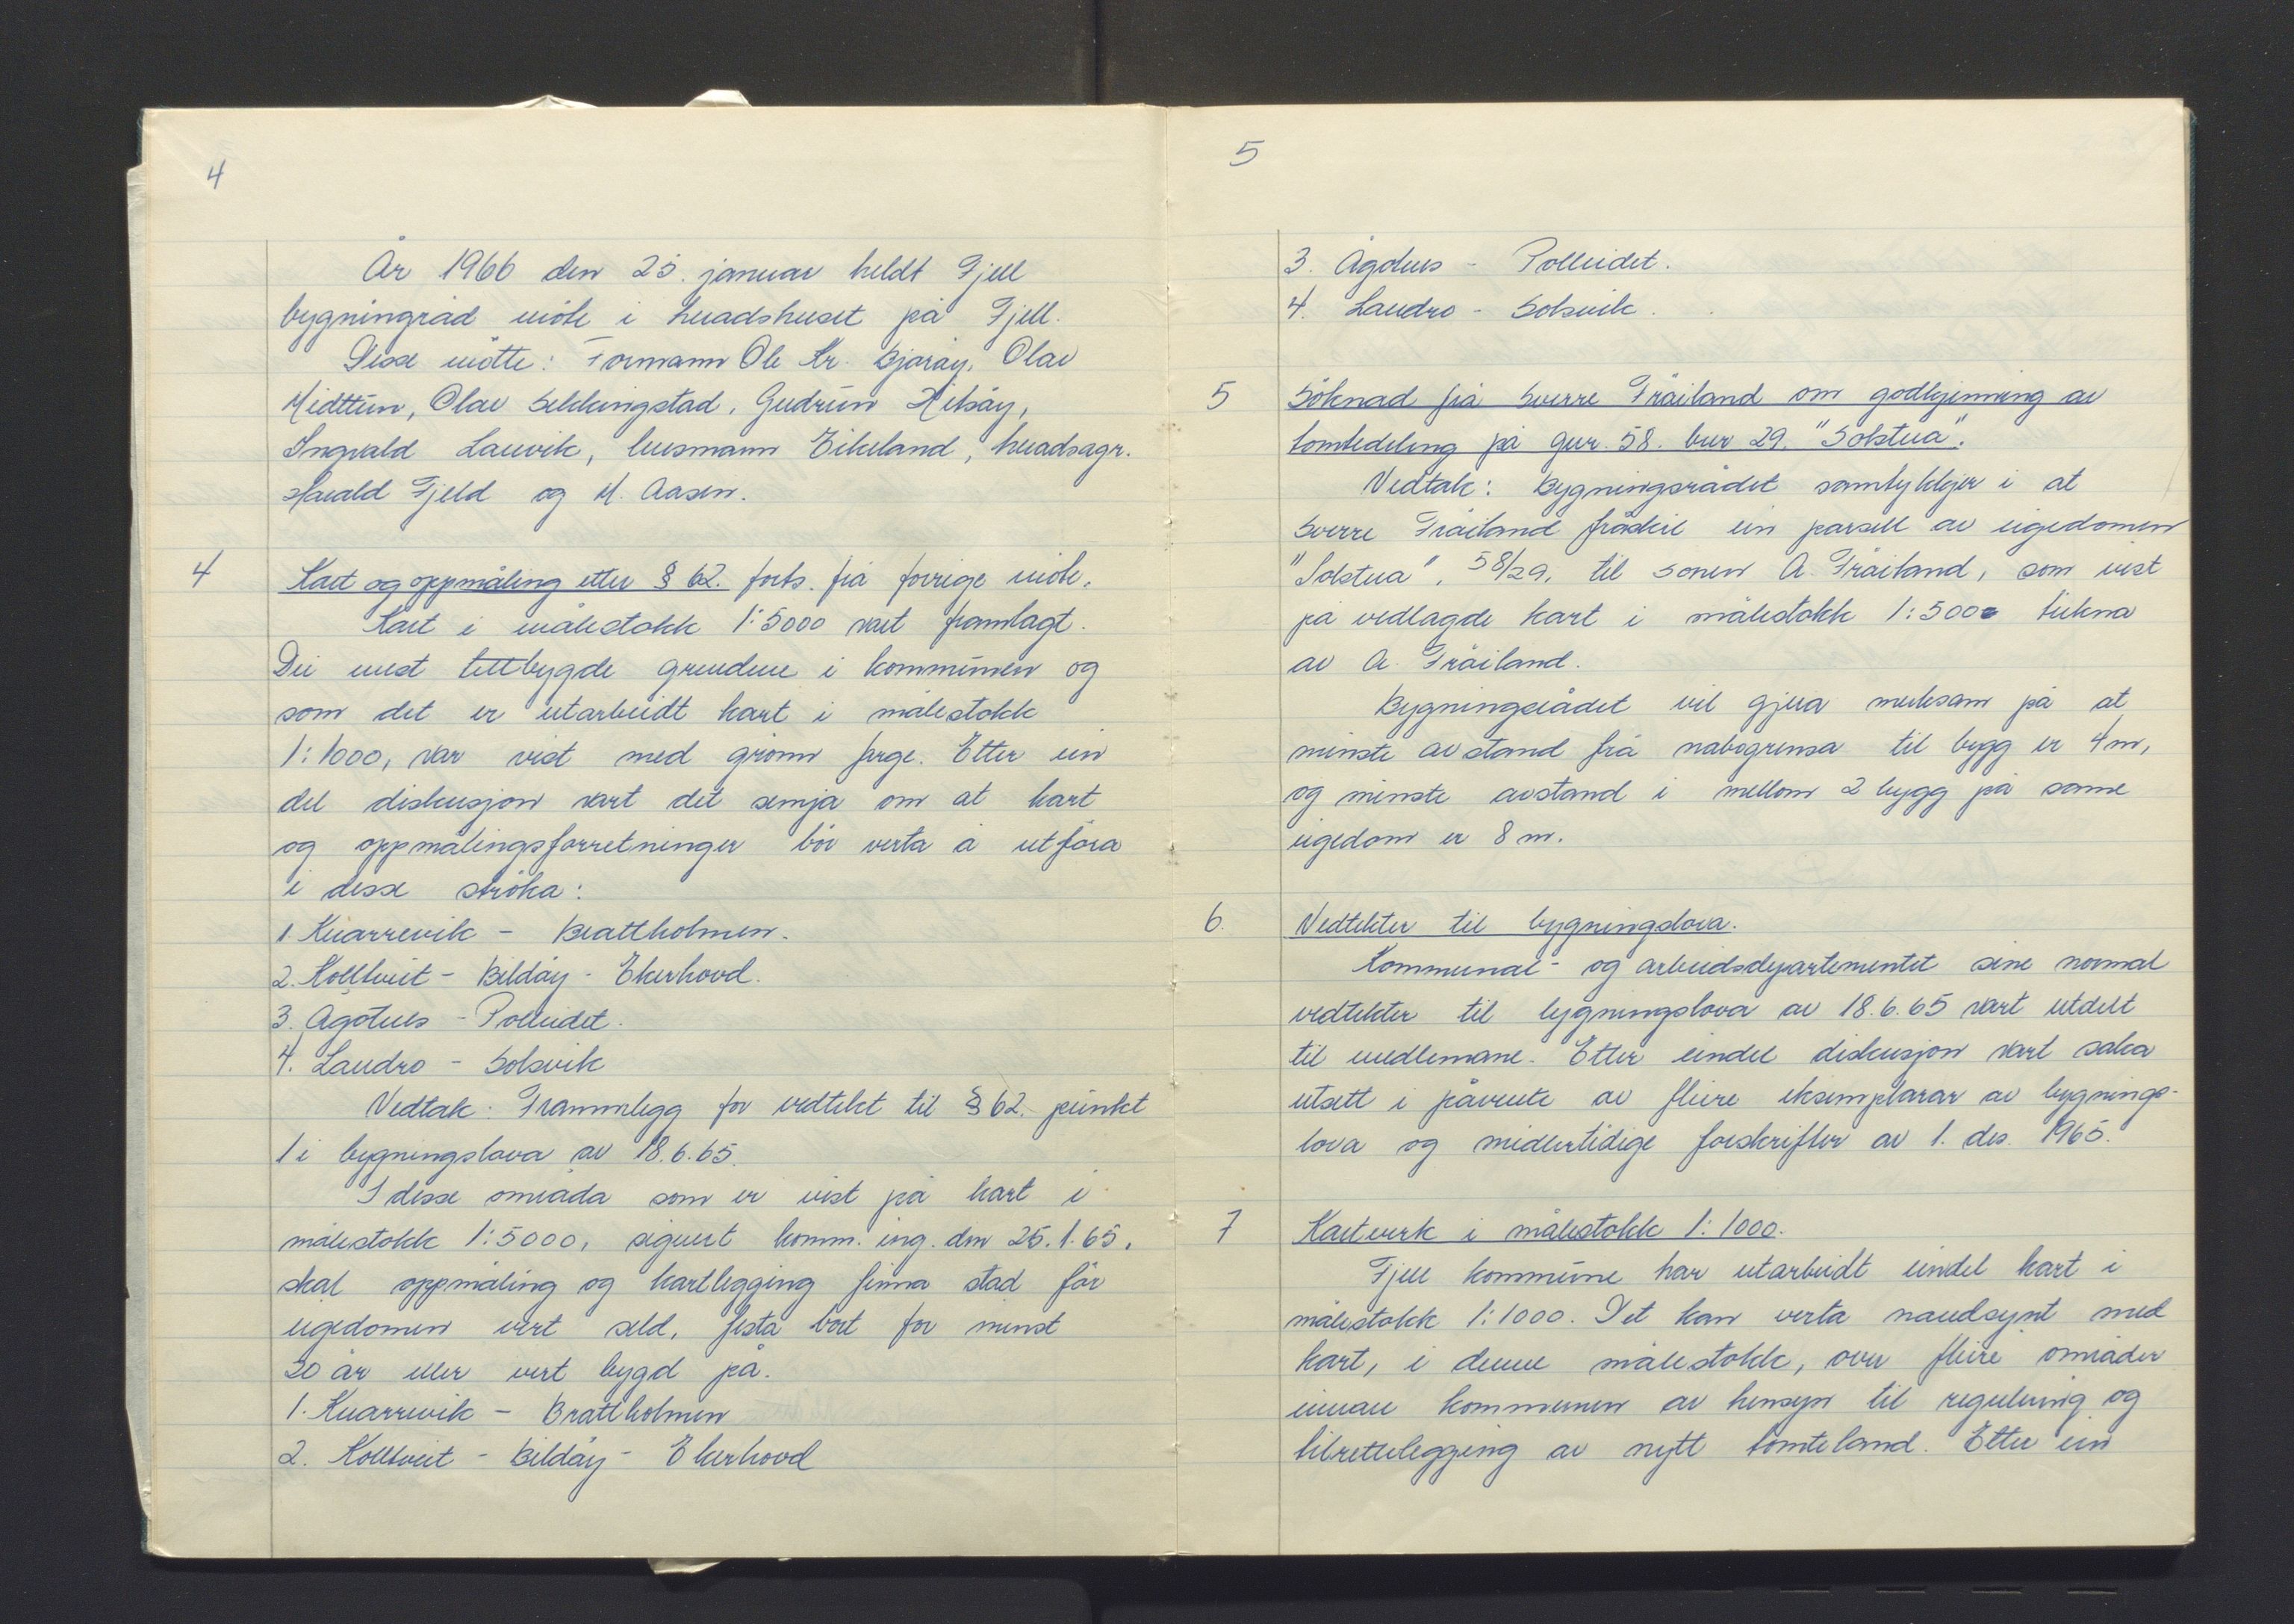 4
År 1966 den 25. januar heldt Fjell
bygningråd möte i heradshuset på Fjell.
Desse mötte: Formann Ole Kr. Bjoröy, Olav
Midttun, Olav Sekkingstad, Gudrun Hitsöy,
Ingvald Lauvik, lensmann Eikeland, heradsagr.
Harald Fjeld og M. Aasen.
4 Kart og oppmåling etter § 62. forts. frå forrige möte.
Kart i målestokk 1:5000 vart framlagt.
Dei mest tettbygde grendene i kommunen og
som det er utarbeidt kart i målestokk
1:1000, var vist med grönn farge. Etter ein
del diskusjon vart det semja om at kart
og oppmålingsforretninger bör verta å utföra
i desse ströka:
1. Knarrevik - Brattholmen.
2. Kolltveit - Bildöy - Ekerhovd.
3. Ågotnes - Polleidet.
4. Landro - Solsvik
Vedtak: Frammlegg for vedtekt til § 62. punkt
1 i bygningslova av 18.6.65.
I desse områda som er vist på kart i
målestokk 1:5000, signert komm. ing. den 25.1.65.
skal oppmåling og kartlegging finna stad för
eigedomen vert seld, festa bort for minst
20 år eller vert bygd på.
1. Knarrevik - Brattholmen
2. Kolltveit - Bildöy - Ekerhovd
5
3. Ågotnes - Polleidet.
4. Landro - Solsvik.
5 Söknad frå Sverre Tröiland om godkjenning av
tomtedeling på gnr. 58. bnr 29. "Solstua".
Vedtak: Bygningsrådet samtykkjer i at
Sverre Tröiland fråskil ein parsell av eigedomen
"Solstua", 58/29, til sonen A. Tröiland, som vist
på vedlagde kart i målestokk 1:5000 teikna
av A. Tröiland.
Bygningsrådet vil gjera merksam på at
minste avstand frå nabogrensa til bygg er 4 m,
og minste avstand i mellom 2 bygg på same
eigedom er 8 m.
6. Vedtekter til bygningslova.
Kommunal- og arbeidsdepartementet sine normal
vedtekter til bygningslova av 18.6.65 vart utdelt
til medlemane. Etter eindel diskusjon vart saka
utsett i påvente av fleire eksemplarar av bygnings-
lova og midlertidige forskrifter av 1. des. 1965.
7 Kartverk i målestokk 1:1000.
Fjell kommune har utarbeidt eindel kart i
målestokk 1:1000. Det kan verta naudsynt med
kart, i denne målestokk, over fleire områder
innan kommunen av hensyn til regulering og
tilrettelegging av nytt tomteland. Etter ein